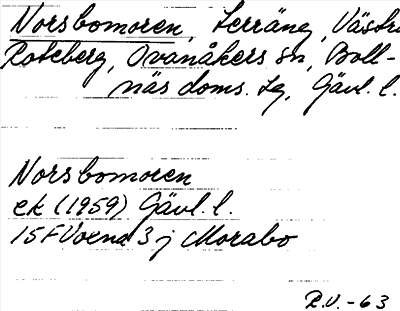 Norsbomoren, terräng, Västra
Roteberg, Ovanåkers sn, Boll-
näs doms. tg, Gävl. l.
Norsbomoren
ek (1959) Gävl. l.
15F Voxna 3 j Morabo
R.V.-63